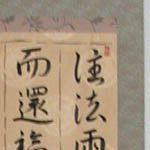 注法雨
而還福